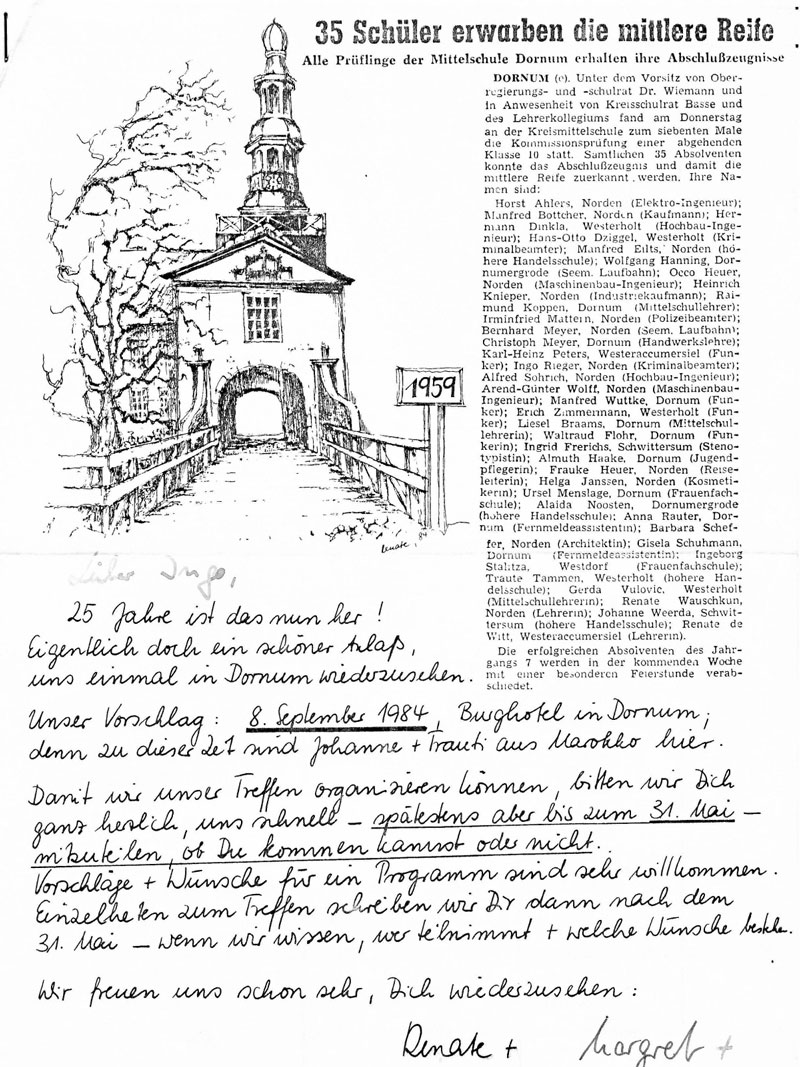 35 Schüler erwarben die mittlere Reife
Alle Prüflinge der Mittelschule Dornum erhalten ihre Abschlußzeugnisse
DORNUM (e). Unter dem Vorsitz von Ober-
regierungs- und -schulrat Dr. Wiemann und
in Anwesenheit von Kreisschulrat Basse und
des Lehrerkollegiums fand am Donnerstag
an der Kreismittelschule zum siebenten Male
die Kommissionsprüfung einer abgehenden
Klasse 10 statt. Sämtlichen 35 Absolventen
konnte das Abschlußzeugnis und damit die
mittlere Reife zuerkannt werden. Ihre Na-
men sind:
Horst Ahlers, Norden (Elektro-Ingenieur);
Manfred Bottcher, Norden (Kaufmann); Her-
mann Dinkla, Westerholt (Hochbau-Inge-
nieur); Hans-Otto Dziggel, Westerholt (Kri-
minalbeamter); Manfred Eilts, Norden (hö-
here Handelsschule); Wolfgang Hanning, Dor-
numergrode (Seem. Laufbahn); Occo Heuer,
Norden (Maschinenbau-Ingenieur); Heinrich
Knieper, Norden (Industriekaufmann); Rai-
mund Koppen, Dornum (Mittelschullehrer);
Irminfried Mattern, Norden (Polizeibeamter);
Bernhard Meyer, Norden (Seem. Laufbahn);
Christoph Meyer, Dornum (Handwerkslehre);
Karl-Heinz Peters, Westeraccumersiel (Fun-
ker); Ingo Rieger, Norden (Kriminalbeamter);
Alfred Sohrich, Norden (Hochbau-Ingenieur);
Arend-Günter Wolff, Norden (Maschinenbau-
Ingenieur); Manfred Wuttke, Dornum (Fun-
ker); Erich Zimmermann, Westerholt (Fun-
ker); Liesel Braams, Dornum (Mittelschul-
lehrerin); Waltraud Flohr, Dornum (Fun-
kerin); Ingrid Frerichs, Schwittersum (Steno-
typistin); Almuth Haake, Dornum (Jugend-
pflegerin); Frauke Heuer, Norden (Reise-
leiterin); Helga Janssen, Norden (Kosmeti-
kerin); Ursel Menslage, Dornum (Frauenfach-
schule); Alaida Noosten, Dornumergrode
(höhere Handelsschule); Anna Rauter, Dor-
num (Fernmeldeassistentin); Barbara Schef-
fer, Norden (Architektin); Gisela Schuhmann,
Dornum (Fernmeldeassistentin); Ingeborg
Stalitza, Westdorf (Frauenfachschule);
Traute Tammen, Westerholt (hohere Han-
delsschule); Gerda Vulovic, Westerholt
(Mittelschullehrerin); Renate Wauschkun,
Norden (Lehrerin); Johanne Weerda, Schwit-
tersum (höhere Handelsschule); Renate de
Witt, Westeraccumersiel (Lehrerin).
Die erfolgreichen Absolventen des Jahr-
gangs 7 werden in der kommenden Woche
mit einer besonderen Feierstunde verab-
schiedet.
1959
Renate, 84
Lieber Ingo,
25 Jahre ist das nun her!
Eigentlich doch ein schöner Anlaß,
uns einmal in Dornum wiederzusehen.
Unser Vorschlag: 8. September 1984, Burghotel in Dornum;
denn zu dieser Zeit sind Johanne + Trauti aus Marokko hier.
Damit wir unser Treffen organisieren können, bitten wir Dich
ganz herzlich, uns schnell – spätestens aber bis zum 31. Mai –
mitzuteilen, ob Du kommen kannst oder nicht.
Vorschläge + Wünsche für ein Programm sind sehr willkommen.
Einzelheiten zum Treffen schreiben wir Dir dann nach dem
31. Mai – wenn wir wissen, wer teilnimmt + welche Wünsche bestehen.
Wir freuen uns schon sehr, Dich wiederzusehen:
Renate + Margret +